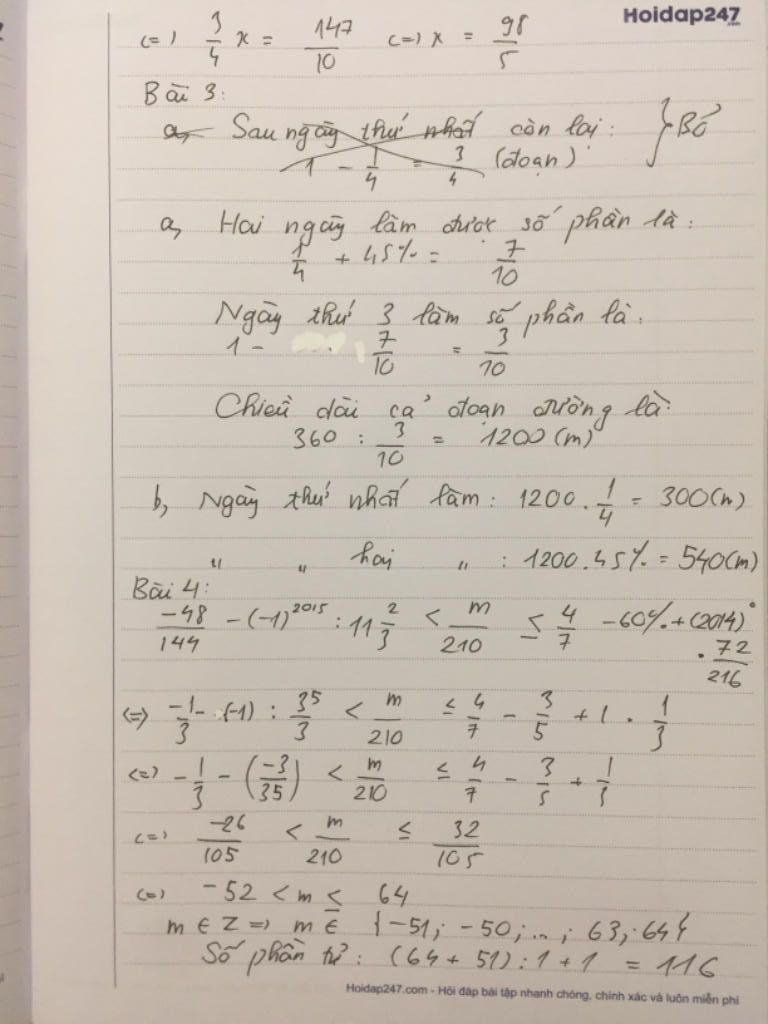 Hoidap247
.com
<=> 3/4 x = 147/10 <=> x = 98/5
Bài 3:
a, Sau ngày thứ nhất còn lại: } Bỏ
1 - 1/4 = 3/4 (đoạn)
a, Hai ngày làm được số phần là:
1/4 + 45% = 7/10
Ngày thứ 3 làm số phần là:
1 - 7/10 = 3/10
Chiều dài cả đoạn đường là:
360 : 3/10 = 1200 (m)
b, Ngày thứ nhất làm : 1200 . 1/4 = 300 (m)
" " hai " : 1200 . 45% = 540 (m)
Bài 4:
-48/144 - (-1)^2015 : 11 2/3 < m/210 ≤ 4/7 - 60% + (2014)^0 . 72/216
<=> -1/3 - (-1) : 35/3 < m/210 ≤ 4/7 - 3/5 + 1 . 1/3
<=> -1/3 - (-3/35) < m/210 ≤ 4/7 - 3/5 + 1/3
<=> -26/105 < m/210 ≤ 32/105
<=> -52 < m ≤ 64
m ∈ Z => m ∈ {-51; -50; ...; 63; 64}
Số phần tử : (64 + 51) : 1 + 1 = 116
Hoidap247.com - Hỏi đáp bài tập nhanh chóng, chính xác và luôn miễn phí